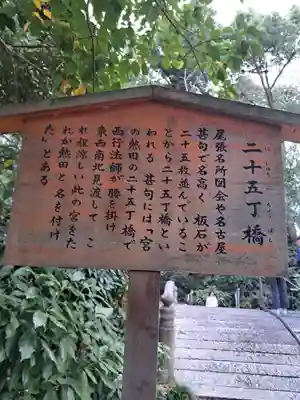 二十五丁橋
にじゅうごちょうばし
尾張名所図会や名古屋
甚句で名高く 板石が
二十五枚並んでいるこ
とから二五丁橋とい
われる 甚句には「宮
の熱田の二十五丁橋で
西行法師が腰を掛け
東西南北見渡して こ
れ程涼しい此の宮をた
れが熱田と名を付け
た」とある